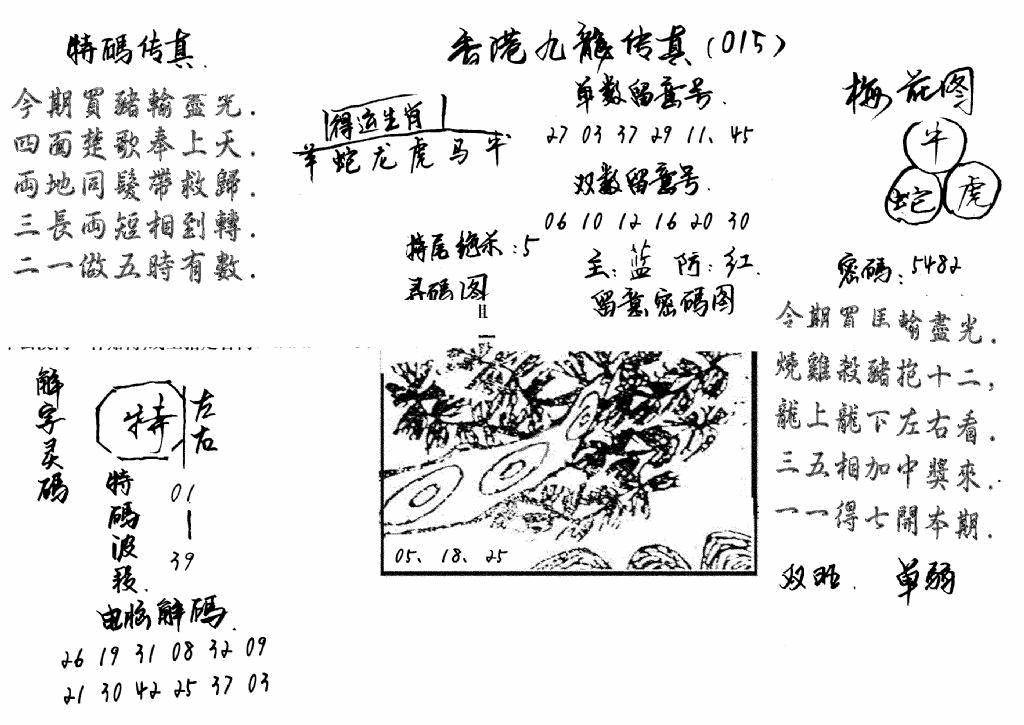 香港九龍传真(015)
特碼传真.
今期買豬輸盡光.
四面楚歌奉上天.
両地同髮帶救歸.
三長両短相到轉.
二一做五時有數.
得运生肖
羊蛇龙虎马牛
单数留意号.
27 03 37 29 11、45
双数留意号.
06 10 12 16 20 30
特尾绝杀:5
主:蓝 防:红.
寻码图
留意密码图
梅花图
牛
蛇
虎
密碼:5482
今期買馬輸盡光.
燒雞殺豬抱十二,
龍上龍下左右看.
三五相加中獎來.
一一得七開本期.
双旺. 单弱
解字灵碼
特
左右
特碼波段.
01
39
05、18、25
电脑解碼.
26 19 31 08 32 09
21 30 42 25 37 03